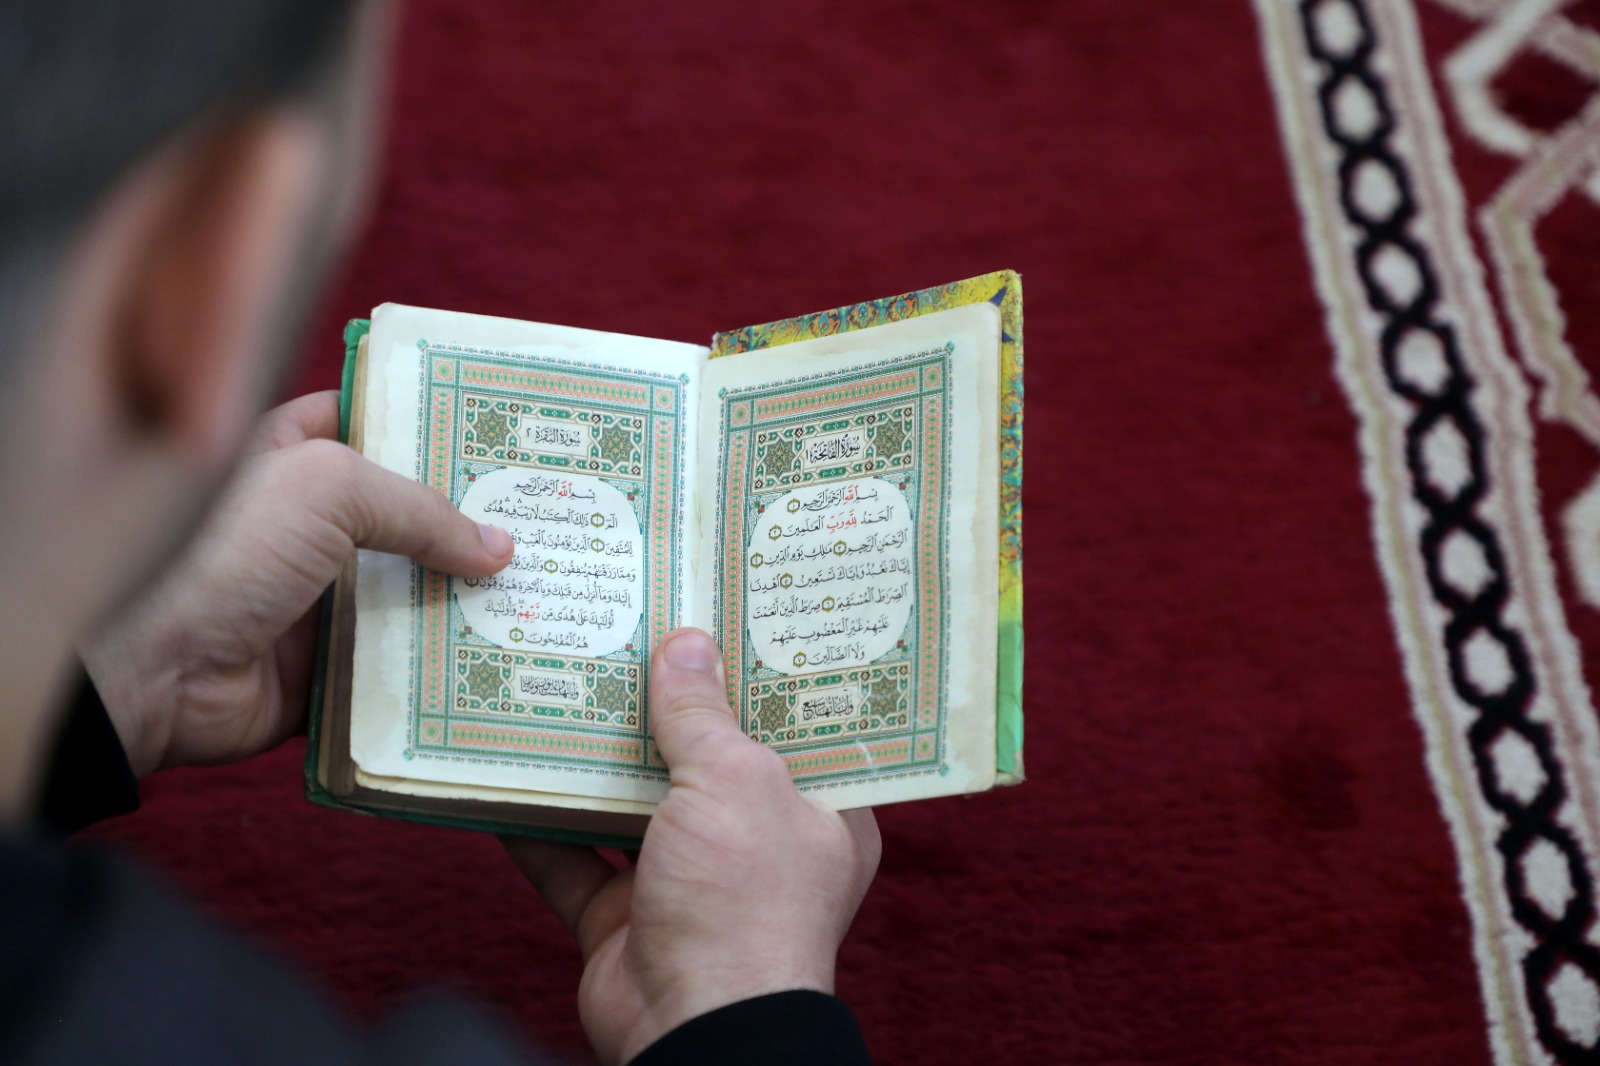 سُورَةُ الْفَاتِحَةِ ١
بِسْمِ ٱللَّهِ ٱلرَّحْمَٰنِ ٱلرَّحِيمِ ١
ٱلْحَمْدُ لِلَّهِ رَبِّ ٱلْعَٰلَمِينَ ٢
ٱلرَّحْمَٰنِ ٱلرَّحِيمِ ٣ مَٰلِكِ يَوْمِ ٱلدِّينِ ٤
إِيَّاكَ نَعْبُدُ وَإِيَّاكَ نَسْتَعِينُ ٥ ٱهْدِنَا
ٱلصِّرَٰطَ ٱلْمُسْتَقِيمَ ٦ صِرَٰطَ ٱلَّذِينَ أَنْعَمْتَ
عَلَيْهِمْ غَيْرِ ٱلْمَغْضُوبِ عَلَيْهِمْ
وَلَا ٱلضَّآلِّينَ ٧
وَآيَاتُهَا سَبْعٌ
سُورَةُ الْبَقَرَةِ ٢
بِسْمِ ٱللَّهِ ٱلرَّحْمَٰنِ ٱلرَّحِيمِ
الٓمٓ ١ ذَٰلِكَ ٱلْكِتَٰبُ لَا رَيْبَ ۛ فِيهِ ۛ هُدًى
لِّلْمُتَّقِينَ ٢ ٱلَّذِينَ يُؤْمِنُونَ بِٱلْغَيْبِ
وَمِمَّا رَزَقْنَٰهُمْ يُنفِقُونَ ٣ وَٱلَّذِينَ
إِلَيْكَ وَمَآ أُنزِلَ مِن قَبْلِكَ وَبِٱلْآخِرَةِ هُمْ يُوقِنُونَ ٤
أُو۟لَٰٓئِكَ عَلَىٰ هُدًى مِّن رَّبِّهِمْ ۖ وَأُو۟لَٰٓئِكَ
هُمُ ٱلْمُفْلِحُونَ ٥